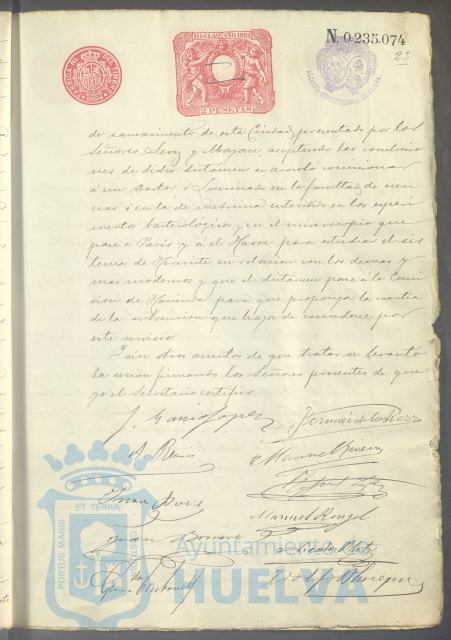 N. 0.235.074
23
11ª CLASE AÑO 1894
2 PESETAS
de saneamiento de esta Ciudad presentado por los
Señores y aceptando las conclusio
nes de dicho dictamen se acordó comisionar
á un Doctor ó Licenciado en la facultad de cien
cias ó en la de medicina entendido en los esperi
mentos bacteriológicos y en el microscopio que
pase á Paris y á el Havre para estudiar el sis
tema de Hermite en relacion con los demas y
mas modernos y que el dictámen pase á la Comi
sion de Hacienda para que proponga la cuantia
de la subvencion que haya de concederse por
este servicio.
Y sin otros asuntos de que tratar se levantó
la sesion firmando los Señores presentes de que
yo el Secretario certifico
J. Garcia Lopez
Manuel Rangel
ET TERRÆ
PORTUS MARIS
Ayuntamiento de
HUELVA